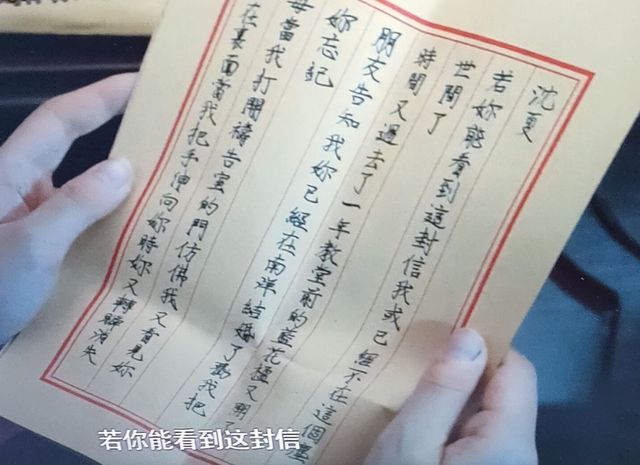 沈夏
若妳能看到這封信我或已經不在這個塵
世間了
時間又過去了一年教堂前的藍花楹又開了
朋友告知我妳已經在南洋結婚了勸我把
妳忘記
每當我打開禱告室的門仿佛我又看見妳
在裏面當我把手伸向妳時妳又轉瞬消失
若你能看到这封信